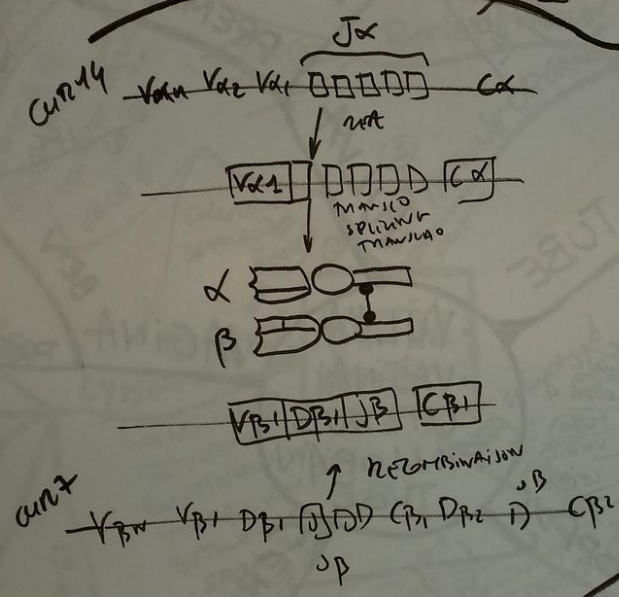 Jα
CHR14 Vαn Vα2 Vα1 Cα
Vα1 Cα
TRANSCO
SPLIZING
TRANSLAO
α
β
Vβ1 Dβ1 Jβ Cβ1
RECOMBINAISON
CHR7 Vβn Vβ1 Dβ1 Cβ1 Dβ2 Jβ Cβ2
Jβ